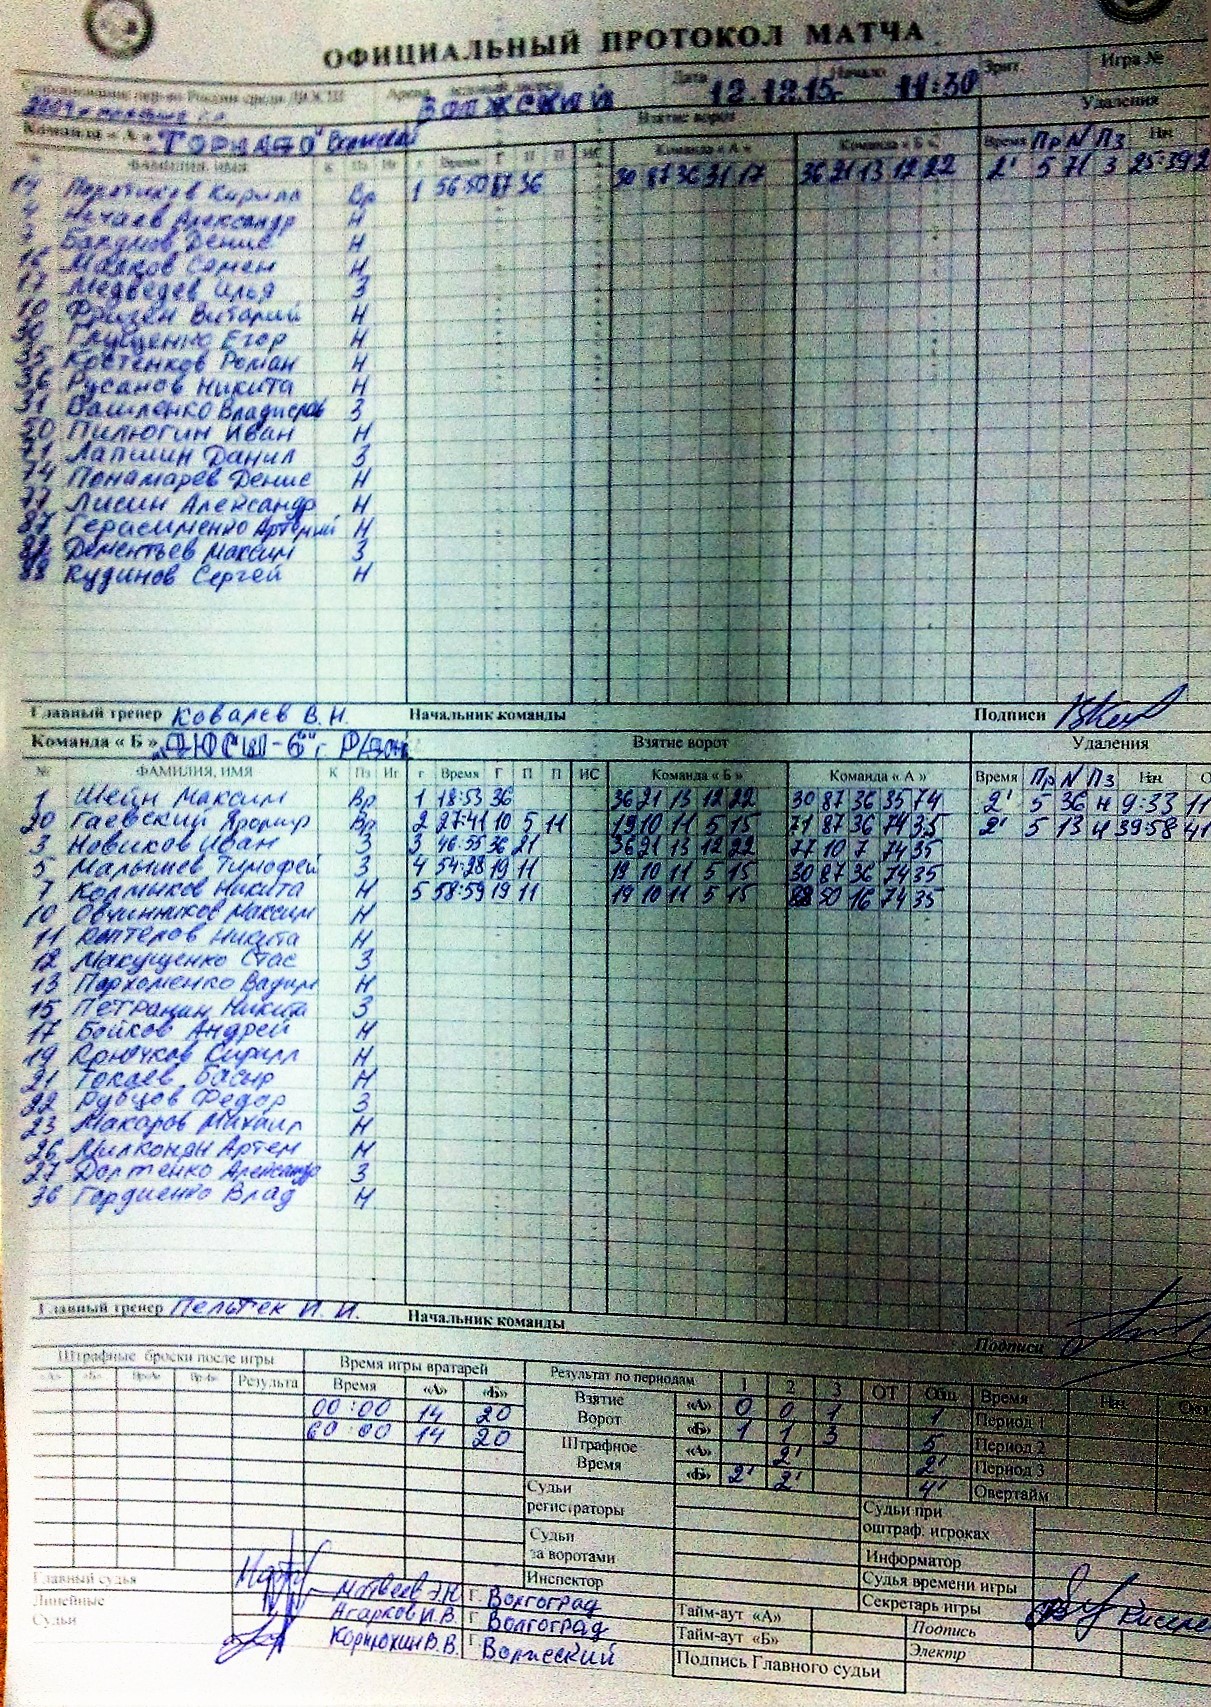 ОФИЦИАЛЬНЫЙ ПРОТОКОЛ МАТЧА
Дата 12.12.15 Начало 11:30 Зрит. Игра №
Арена Волжский
Команда « А » "ТОРНАДО" Взятие ворот Удаления
№ ФАМИЛИЯ, ИМЯ К Пз Иг г Время Г П П ИС Команда « А » Команда « Б » Время Пр N Пз Нач.
14 Кирилл Вр 1 56 50 87 36 30 87 36 31 17 36 21 13 12 22 2' 5 71 3 25:39
4 Нечаев Александр Н
Денис Н
16 Семен Н
17 Медведев Илья З
10 Фризен Виталий Н
30 Глущенко Егор Н
35 Костенков Роман Н
36 Русанов Никита Н
31 Владислав З
50 Пилюгин Иван Н
71 Лапшин Данил З
74 Понамарев Денис Н
77 Лисин Александр Н
87 Герасименко Артемий Н
88 Дементьев Максим З
89 Кудинов Сергей Н
Главный тренер Ковалев В.Н. Начальник команды Подписи
Команда « Б » "ДЮСШ-6" г. Р/Дон Взятие ворот Удаления
№ ФАМИЛИЯ, ИМЯ К Пз Иг г Время Г П П ИС Команда « Б » Команда « А » Время Пр N Пз Нач.
1 Шейн Максим Вр 1 18:53 36 36 21 13 12 22 30 87 36 35 74 2' 5 36 Н 9:33 11
20 Гаевский Вр 2 27:41 10 5 11 19 10 11 5 15 71 87 36 74 35 2' 5 13 Н 39:58 41
3 Новиков Иван З 3 46:55 36 21 36 21 13 12 22 77 10 7 74 35
5 Малышев Тимофей З 4 54:28 19 11 19 10 11 5 15 30 87 36 74 35
7 Колмыков Никита Н 5 58:59 19 11 19 10 11 5 15 88 50 16 74 35
10 Овчинников Максим Н
11 Никита Н
12 Макущенко Стас З
13 Пархоменко Вадим Н
15 Никита З
17 Бойков Андрей Н
19 Крючков Кирилл Н
21 Токаев Басыр Н
22 Рубцов Федор З
23 Макаров Михаил Н
26 Милконян Артем Н
27 Александр З
36 Гордиенко Влад Н
Главный тренер Пельтек И. И. Начальник команды Подписи
Штрафные броски после игры Время игры вратарей Результат по периодам 1 2 3 ОТ Общ Время Нач.
«А» «Б» Результа Время «А» «Б» Взятие Ворот «А» 0 0 1 1 Период 1
00:00 14 20 «Б» 1 1 3 5 Период 2
60:00 14 20 Штрафное Время «А» 2' 2' Период 3
«Б» 2' 2' 4' Овертайм
Судьи регистраторы Судьи при оштраф. игроках
Судьи за воротами Информатор
Инспектор Судья времени игры
Главный судья Матвеев Э.Н. г. Волгоград Секретарь игры
Линейные Агарков И.В. г. Волгоград Тайм-аут «А» Подпись
Судьи Корнюхин В.В. г. Волжский Тайм-аут «Б» Электр
Подпись Главного судьи